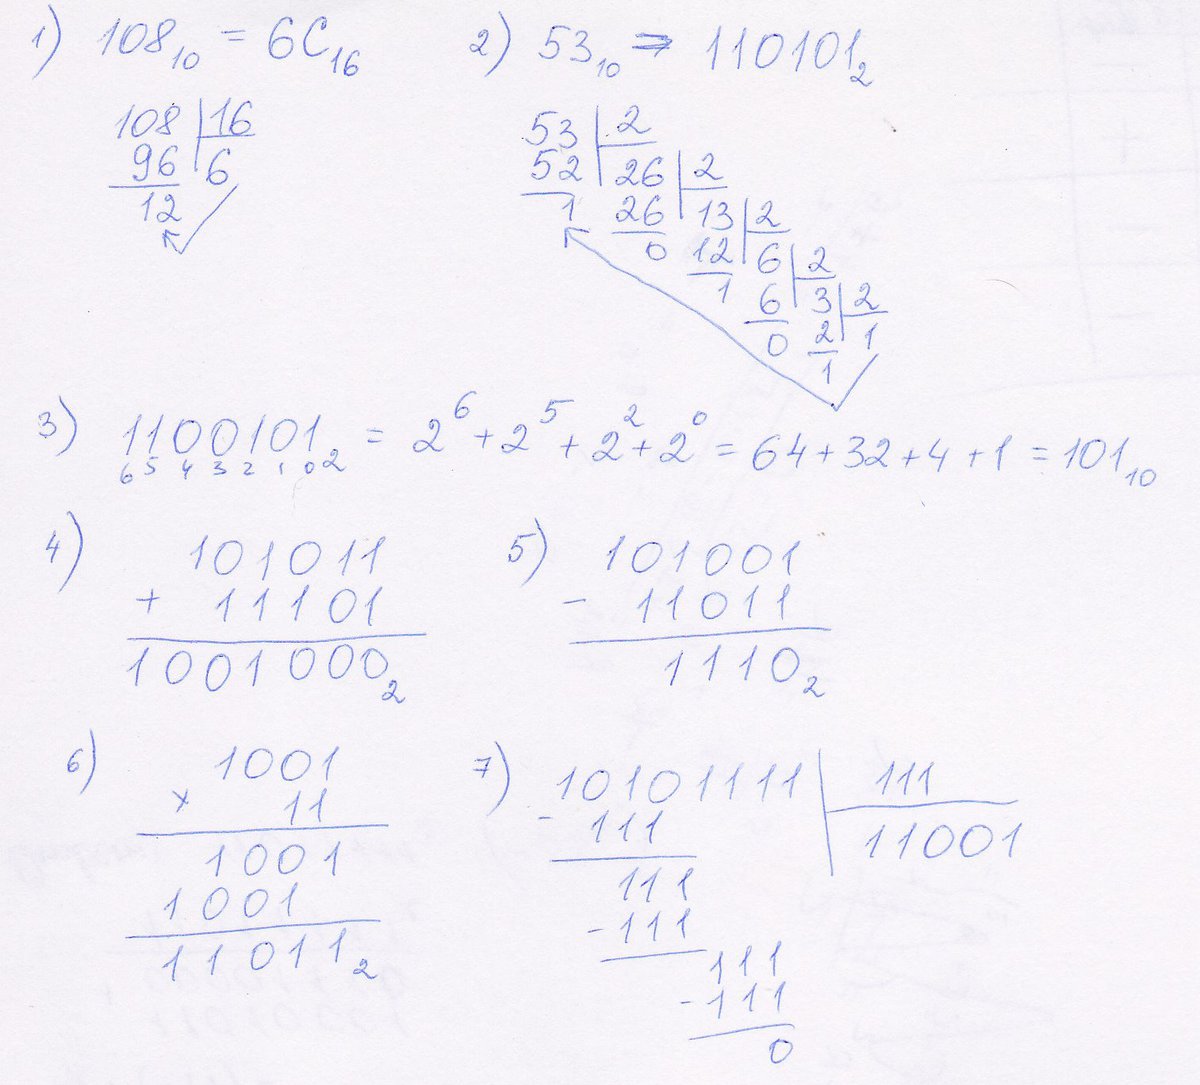 1) 108₁₀ = 6C₁₆
108 | 16
96 6
12
2) 53₁₀ = 110101₂
53 | 2
52 26 | 2
1 26 13 | 2
0 12 6 | 2
1 6 3 | 2
0 2 1
1
3) 1100101₂ = 2⁶ + 2⁵ + 2² + 2⁰ = 64 + 32 + 4 + 1 = 101₁₀
6 5 4 3 2 1 0
4) 101011
+ 11101
1001000₂
5) 101001
- 11011
1110₂
6) 1001
× 11
1001
1001
11011₂
7) 10101111 | 111
- 111 11001
111
- 111
111
- 111
0